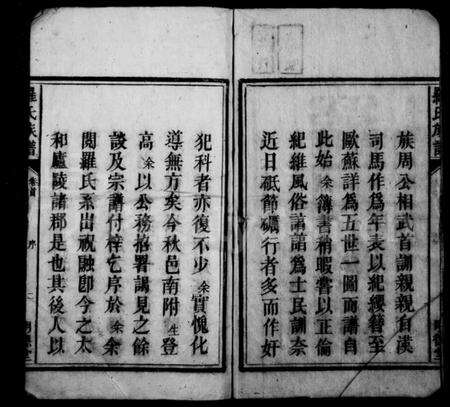 族周公相武首訓親親自漢
司馬作爲年表以紀纓簪至
歐蘇詳爲五世一圖而譜自
此始余簿書稍暇嘗以正倫
紀維風俗諭誥爲士民訓奈
近日砥節礪行者多而作奸
犯科者亦復不少余實愧化
導無方矣今秋邑南附生登
高余以公務招署講見之餘
談及宗譜付梓乞序於余余
閱羅氏系出祝融卽今之太
和廬陵諸郡是也其後人以
羅氏族譜
卷首
序